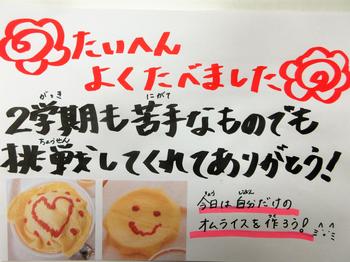 たいへん
よくたべました
2学期も苦手なものでも
挑戦してくれてありがとう!
今日は自分だけの
オムライスを作ろう!